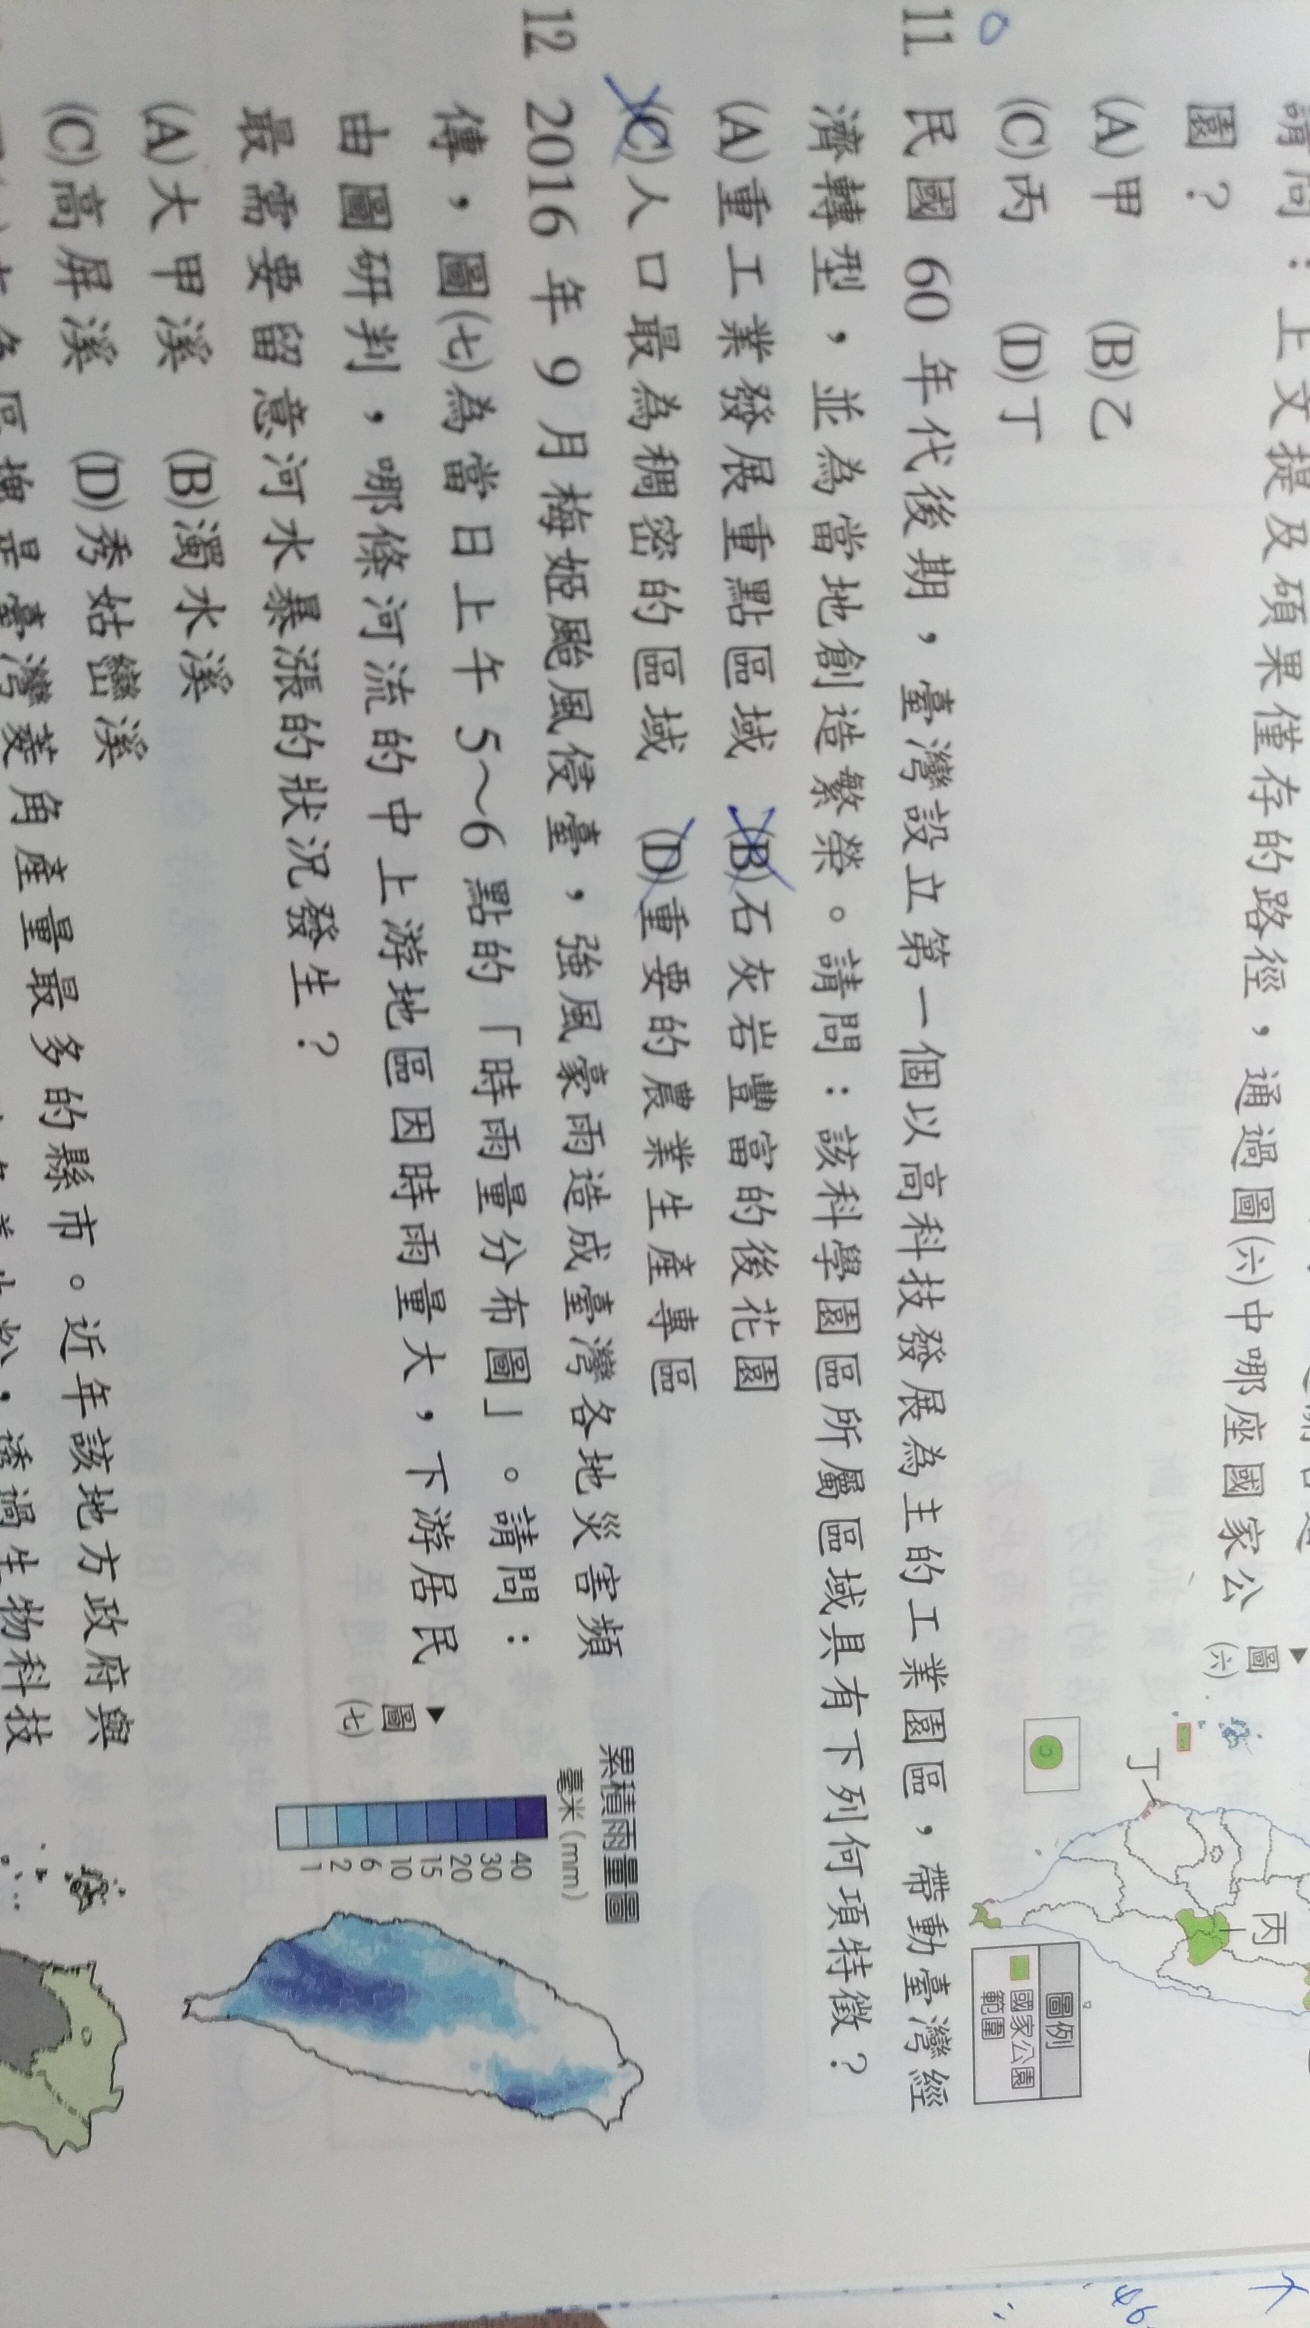 請問：上文提及碩果僅存的路徑，通過圖(六)中哪座國家公
園？
(A)甲 (B)乙
(C)丙 (D)丁
▲圖(六)
丁
丙
圖例
國家公園範圍
11 民國 60 年代後期，臺灣設立第一個以高科技發展為主的工業園區，帶動臺灣經
濟轉型，並為當地創造繁榮。請問：該科學園區所屬區域具有下列何項特徵？
(A)重工業發展重點區域 (B)石灰岩豐富的後花園
(C)人口最為稠密的區域 (D)重要的農業生產專區
12 2016 年 9 月梅姬颱風侵臺，強風豪雨造成臺灣各地災害頻
傳，圖(七)為當日上午 5～6 點的「時雨量分布圖」。請問：
由圖研判，哪條河流的中上游地區因時雨量大，下游居民
最需要留意河水暴漲的狀況發生？
(A)大甲溪 (B)濁水溪
(C)高屏溪 (D)秀姑巒溪
▲圖(七)
累積雨量圖
毫米(mm)
40
30
20
15
10
6
2
1
臺灣菱角產量最多的縣市。近年該地方政府與
透過生物科技